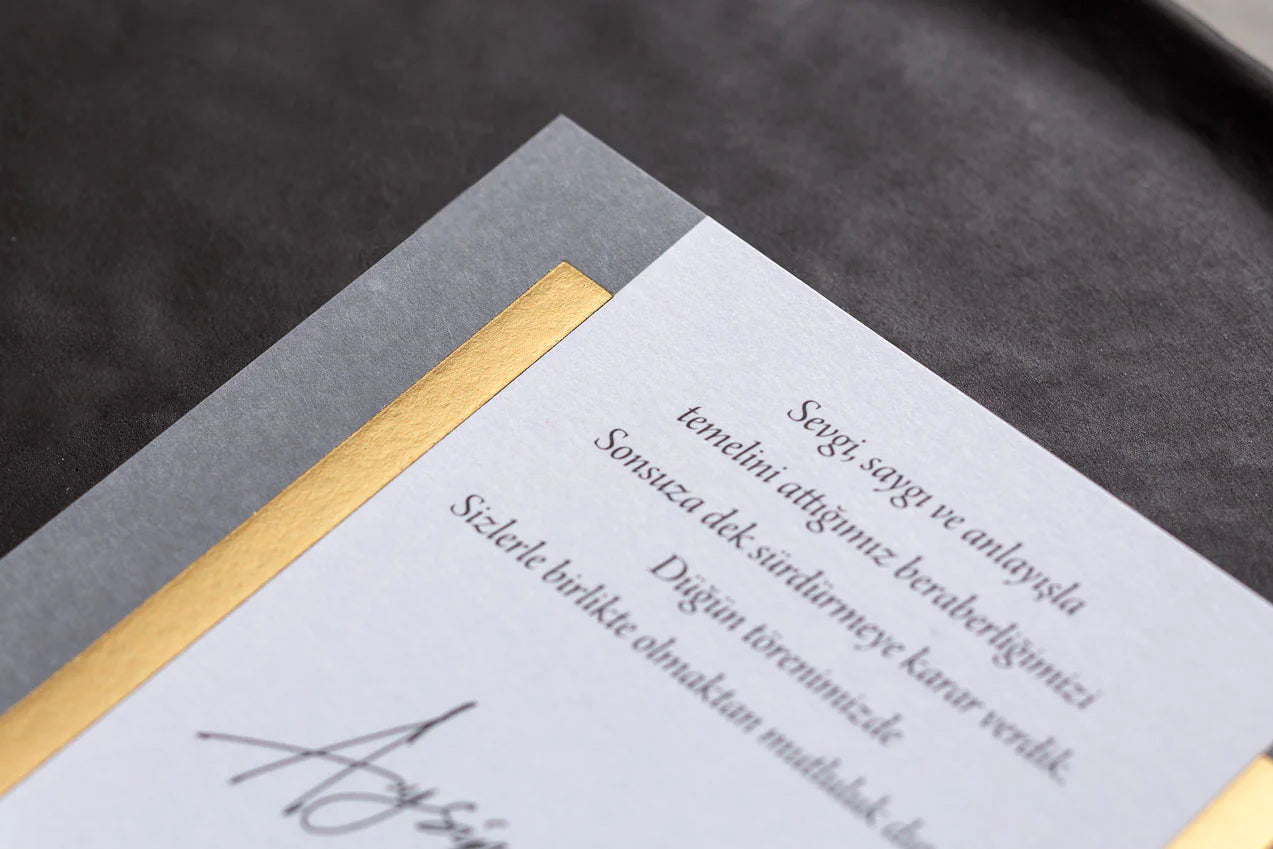 Sevgi, saygı ve anlayışla
temelini attığımız beraberliğimizi
Sonsuza dek sürdürmeye karar verdik.
Düğün törenimizde
Sizlerle birlikte olmaktan mutluluk